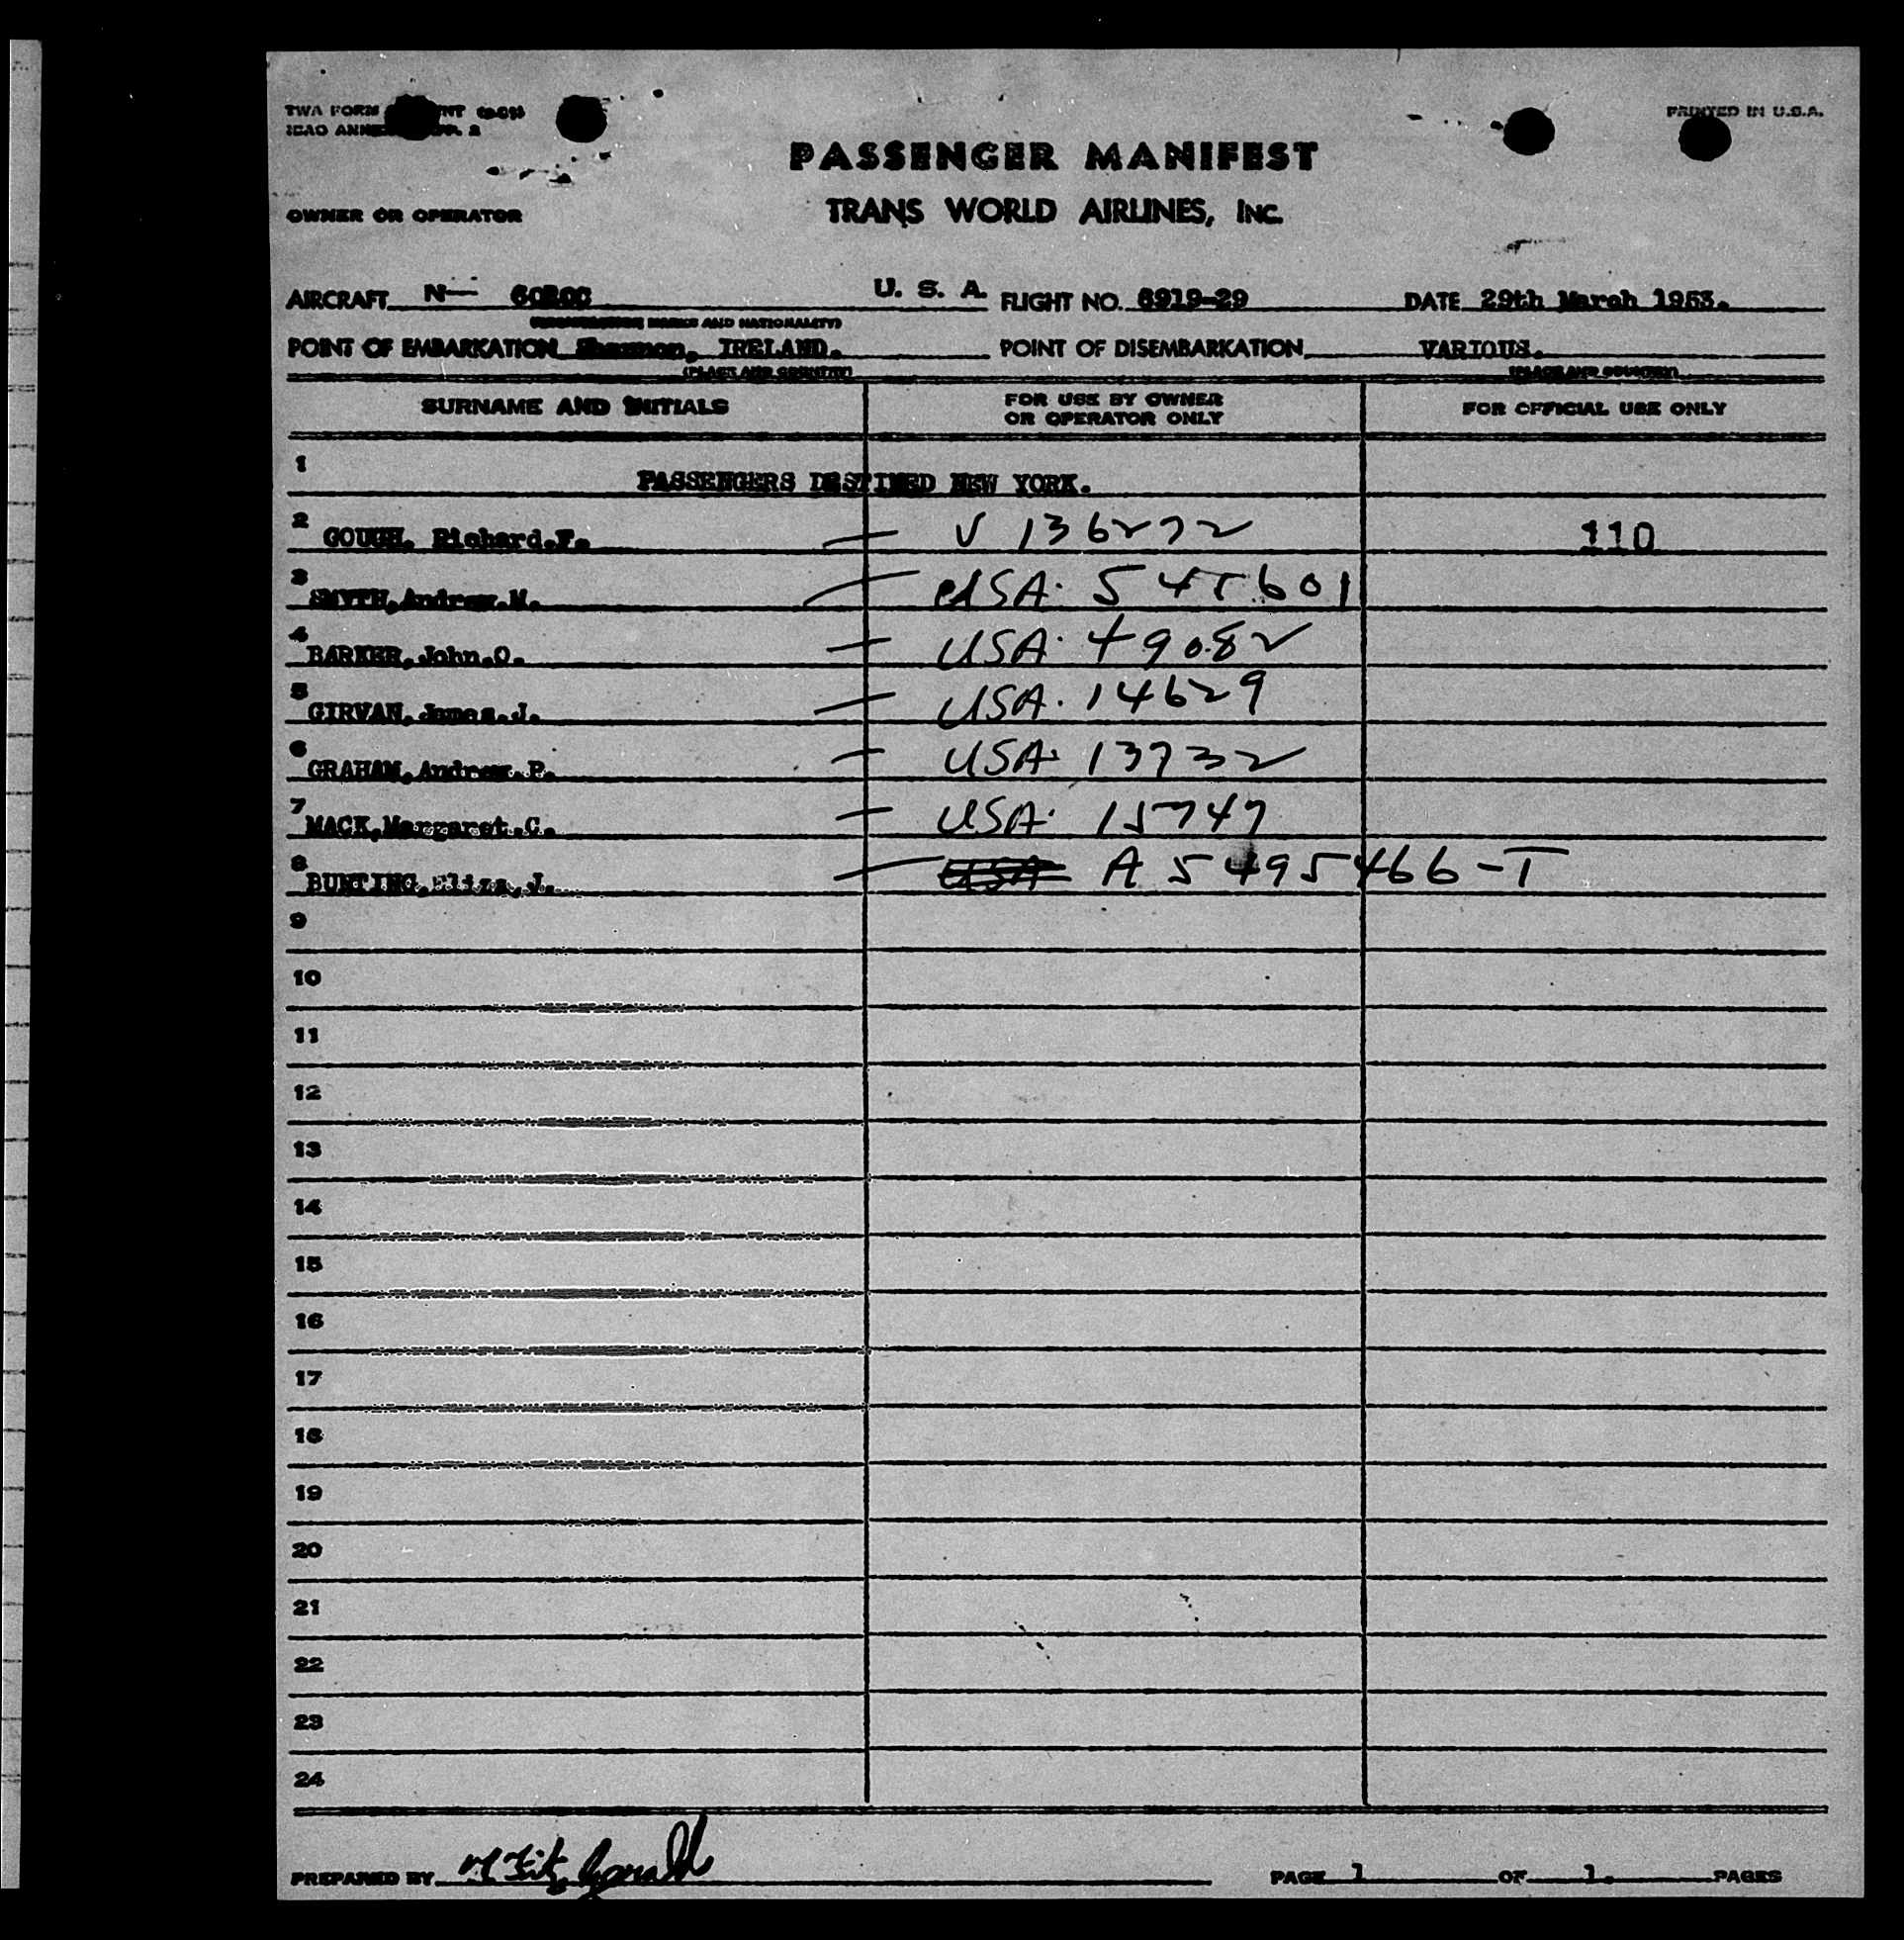 TWA FORM
PRINTED IN U.S.A.
ICAO ANNEX 2
PASSENGER MANIFEST
OWNER OR OPERATOR
TRANS WORLD AIRLINES, INC.
AIRCRAFT N— U. S. A. FLIGHT NO. 6919-29 DATE 29th March 1953.
MARKS AND NATIONALITY)
POINT OF EMBARKATION Shannon, IRELAND. POINT OF DISEMBARKATION VARIOUS.
(PLACE AND COUNTRY) (PLACE AND COUNTRY)
SURNAME AND INITIALS FOR USE BY OWNER OR OPERATOR ONLY FOR OFFICIAL USE ONLY
1 PASSENGERS DESTINED NEW YORK.
2 GOUGH. Richard.F. — V 136272 110
3 SMYTH,Andrew.M. — USA. 545601
4 BARKER,John.O. — USA. 49082
5 GIRVAN,James.J. — USA. 14629
6 GRAHAM,Andrew.P. — USA. 13732
7 MACK,Margaret.C. — USA. 15747
8 BUNTING,Eliza,J. — USA A 5495466-T
9
10
11
12
13
14
15
16
17
18
19
20
21
22
23
24
PREPARED BY M Fitzgerald PAGE 1 OF 1. PAGES